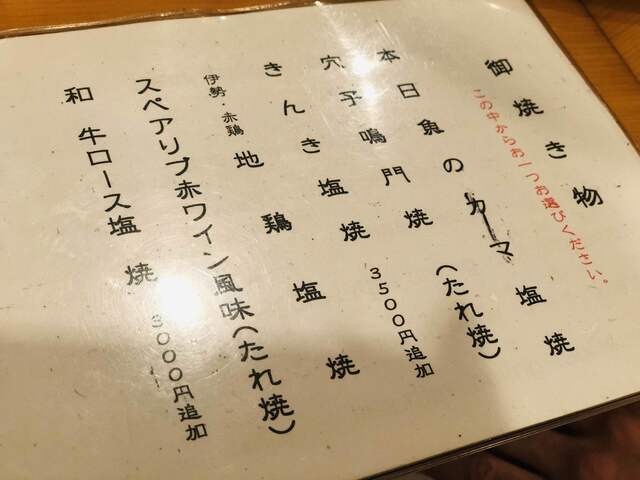 御焼き物
この中からお一つお選びください。
本日魚のカーマ塩焼
穴子鳴門焼(たれ焼)
きんき塩焼 3500円追加
伊勢・赤鶏 地鶏塩焼
スペアリブ赤ワイン風味(たれ焼)
和牛ロース塩焼 3000円追加